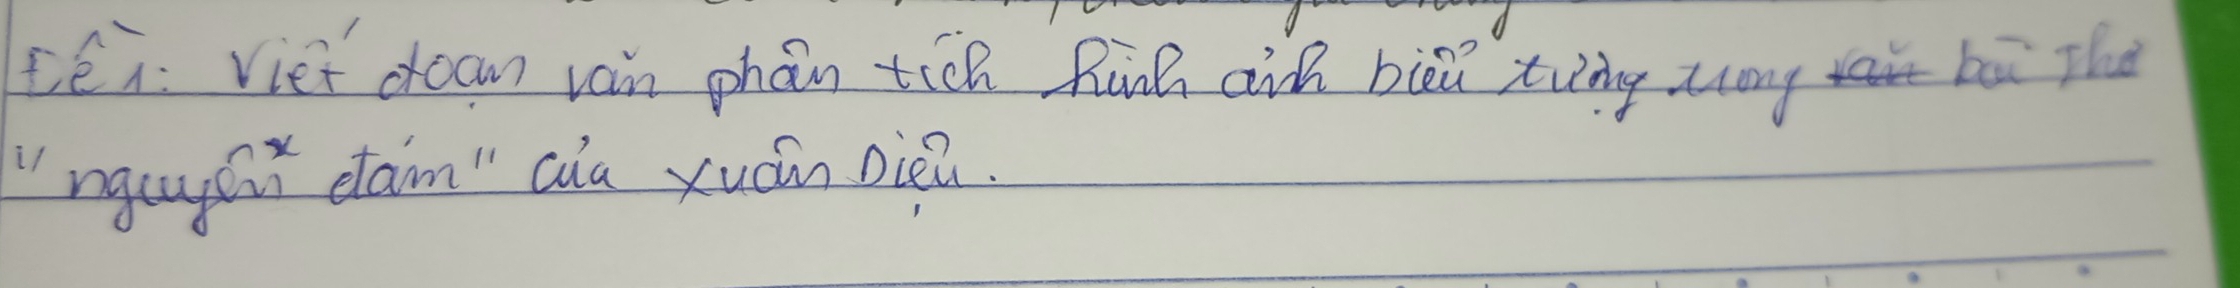 Đề 1: Viết đoạn văn phân tích hình ảnh biểu tượng trong bài thơ
"nguyên đán" của Xuân Diệu.